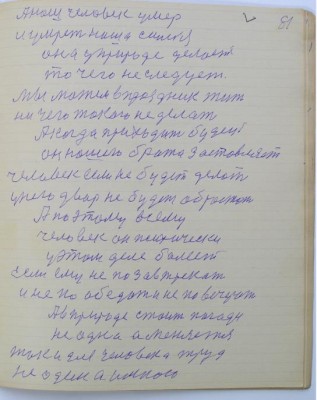 51
А наш человек умер
и умрет наша самоя
она у природе делоет
то чего не следует.
Мы можем в праздник жит
ни чего токого не делат
А когда приходит будет
он нашего брата заставляет
человек если не будет делот
у него двар не будет обротот
А поэтому всему
человек он психически
у этом деле болеет
если ему не позавтрекат
и не по обедоти не повечерят
А в природе стоит погода
не одна а меняется
токи для человека труд
не один а много